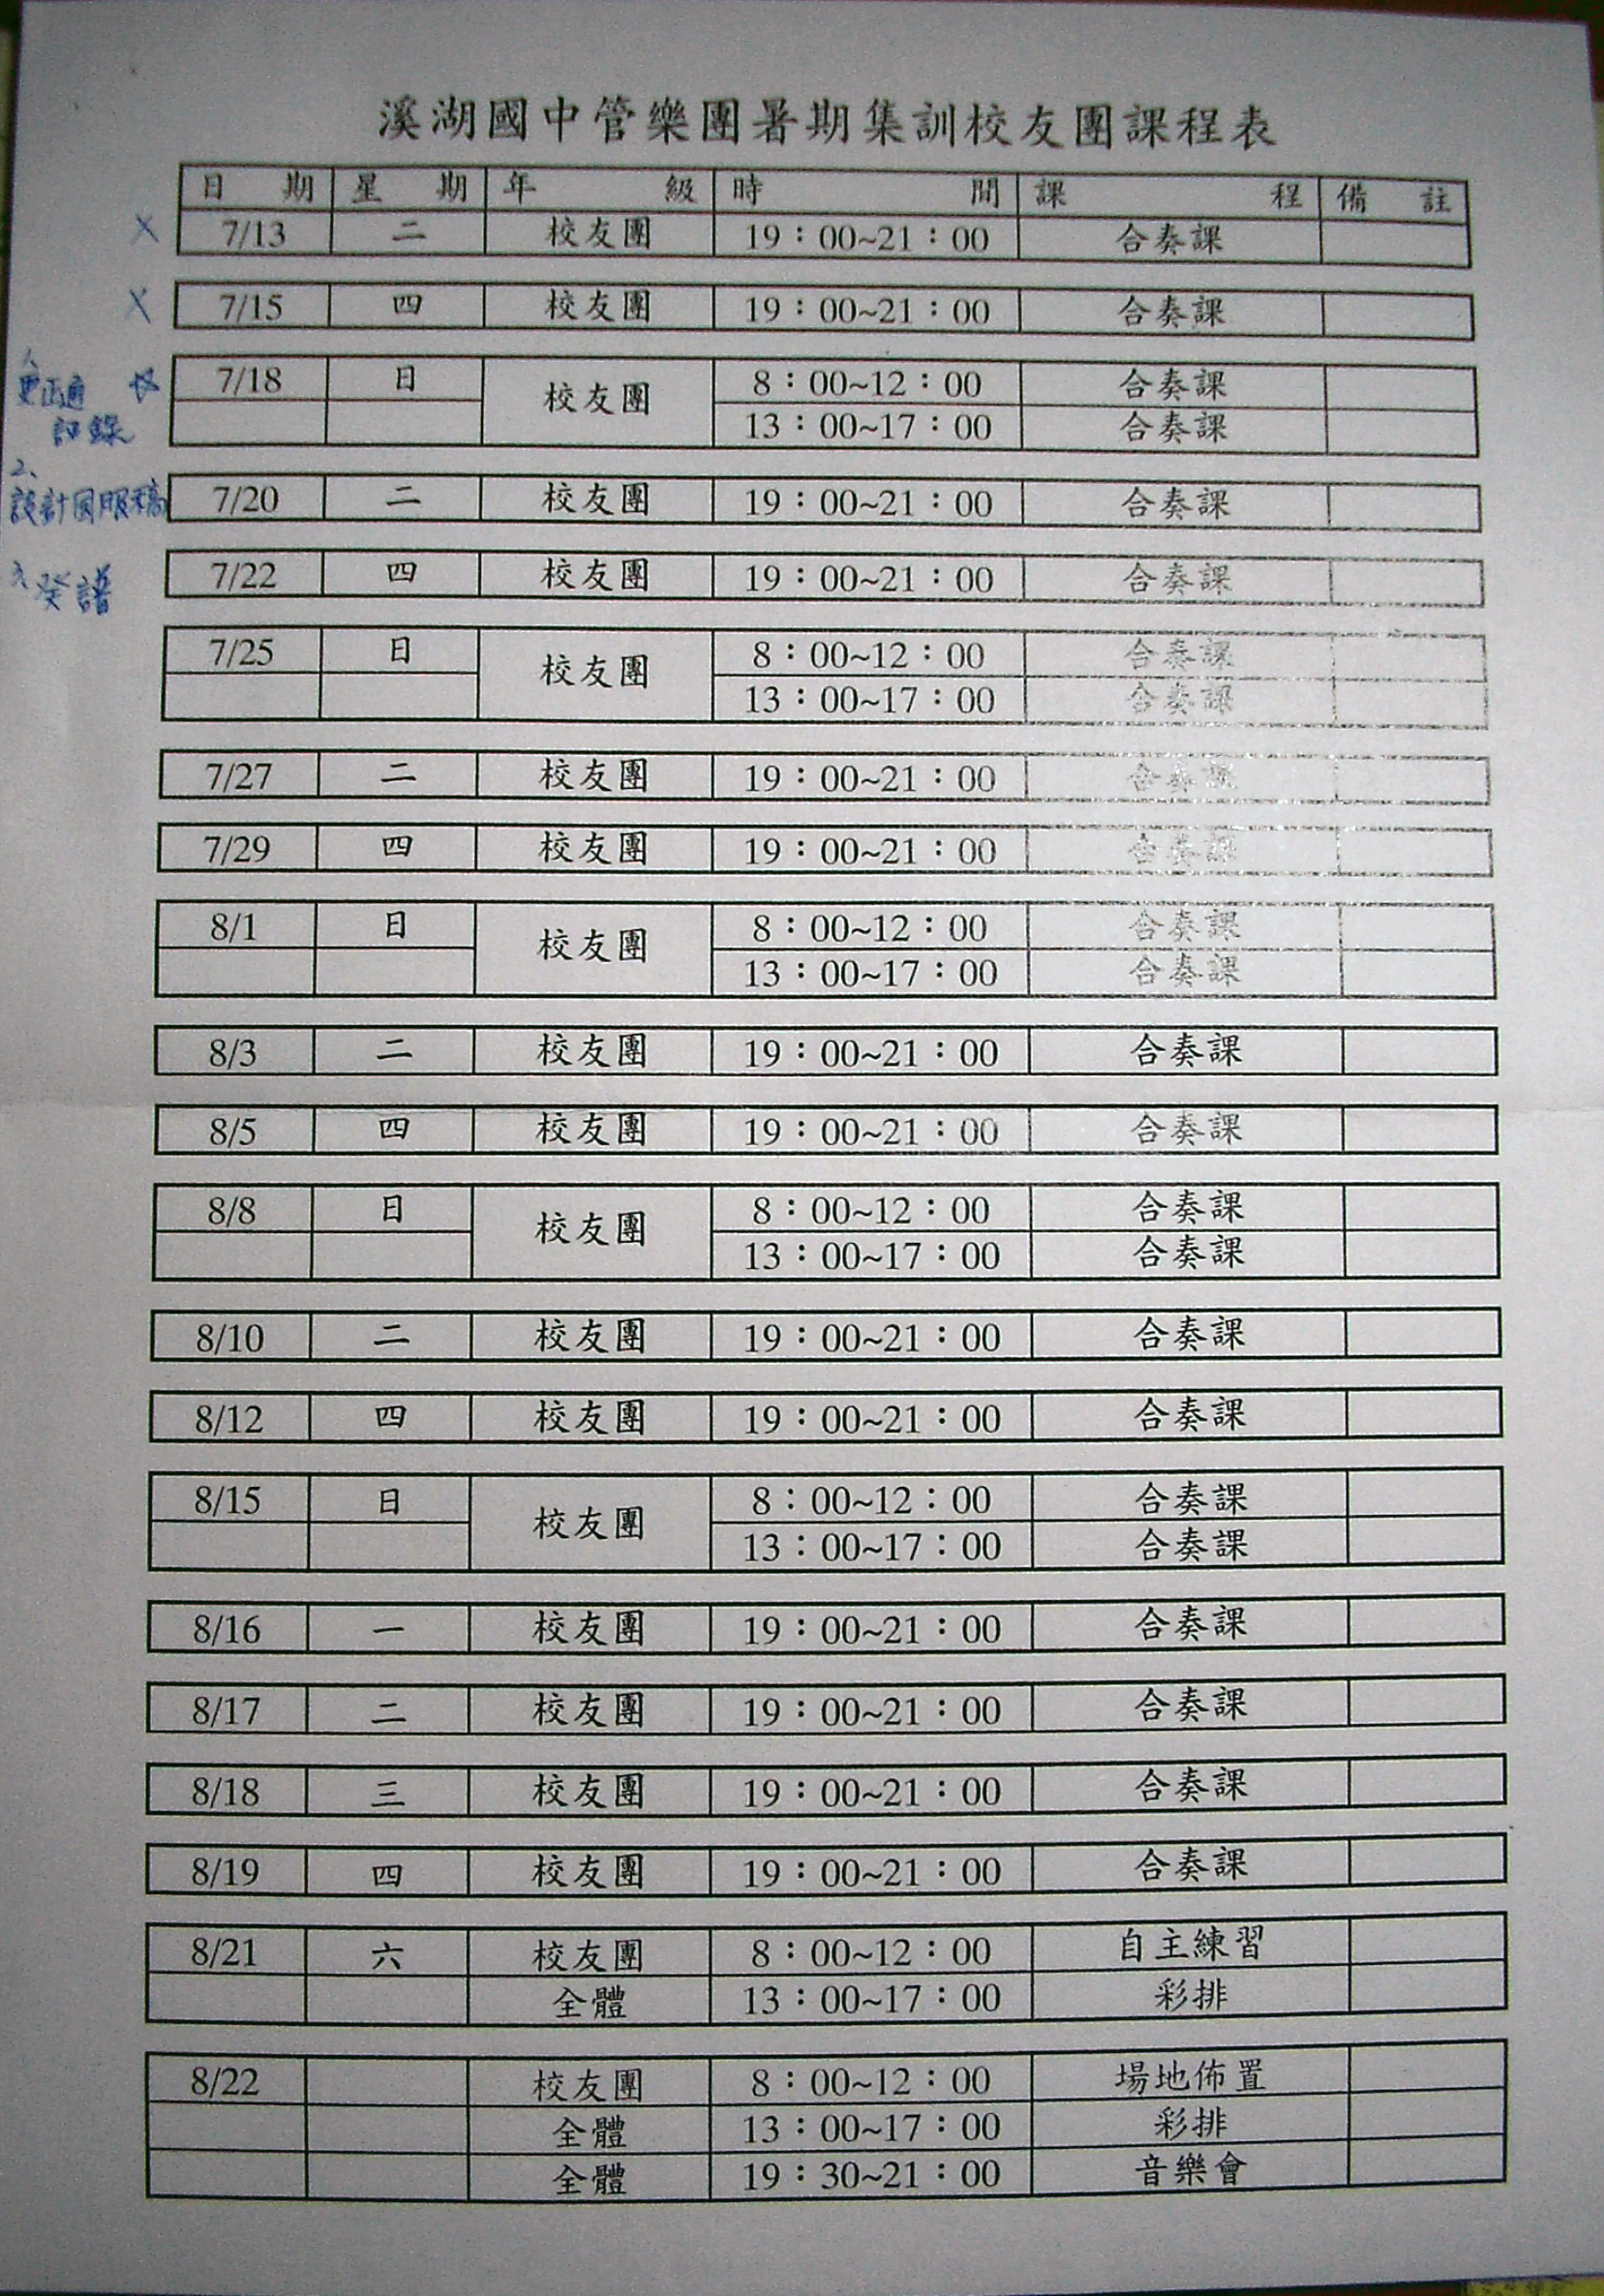 溪湖國中管樂團暑期集訓校友團課程表
日期 星期 年級 時間 課程 備註
7/13 二 校友團 19：00~21：00 合奏課
7/15 四 校友團 19：00~21：00 合奏課
1、
更正通
訊錄
7/18 日 校友團 8：00~12：00 合奏課
13：00~17：00 合奏課
2、
設計團服稿
7/20 二 校友團 19：00~21：00 合奏課
3、發譜
7/22 四 校友團 19：00~21：00 合奏課
7/25 日 校友團 8：00~12：00 合奏課
13：00~17：00 合奏課
7/27 二 校友團 19：00~21：00 合奏課
7/29 四 校友團 19：00~21：00 合奏課
8/1 日 校友團 8：00~12：00 合奏課
13：00~17：00 合奏課
8/3 二 校友團 19：00~21：00 合奏課
8/5 四 校友團 19：00~21：00 合奏課
8/8 日 校友團 8：00~12：00 合奏課
13：00~17：00 合奏課
8/10 二 校友團 19：00~21：00 合奏課
8/12 四 校友團 19：00~21：00 合奏課
8/15 日 校友團 8：00~12：00 合奏課
13：00~17：00 合奏課
8/16 一 校友團 19：00~21：00 合奏課
8/17 二 校友團 19：00~21：00 合奏課
8/18 三 校友團 19：00~21：00 合奏課
8/19 四 校友團 19：00~21：00 合奏課
8/21 六 校友團 8：00~12：00 自主練習
全體 13：00~17：00 彩排
8/22 校友團 8：00~12：00 場地佈置
全體 13：00~17：00 彩排
全體 19：30~21：00 音樂會